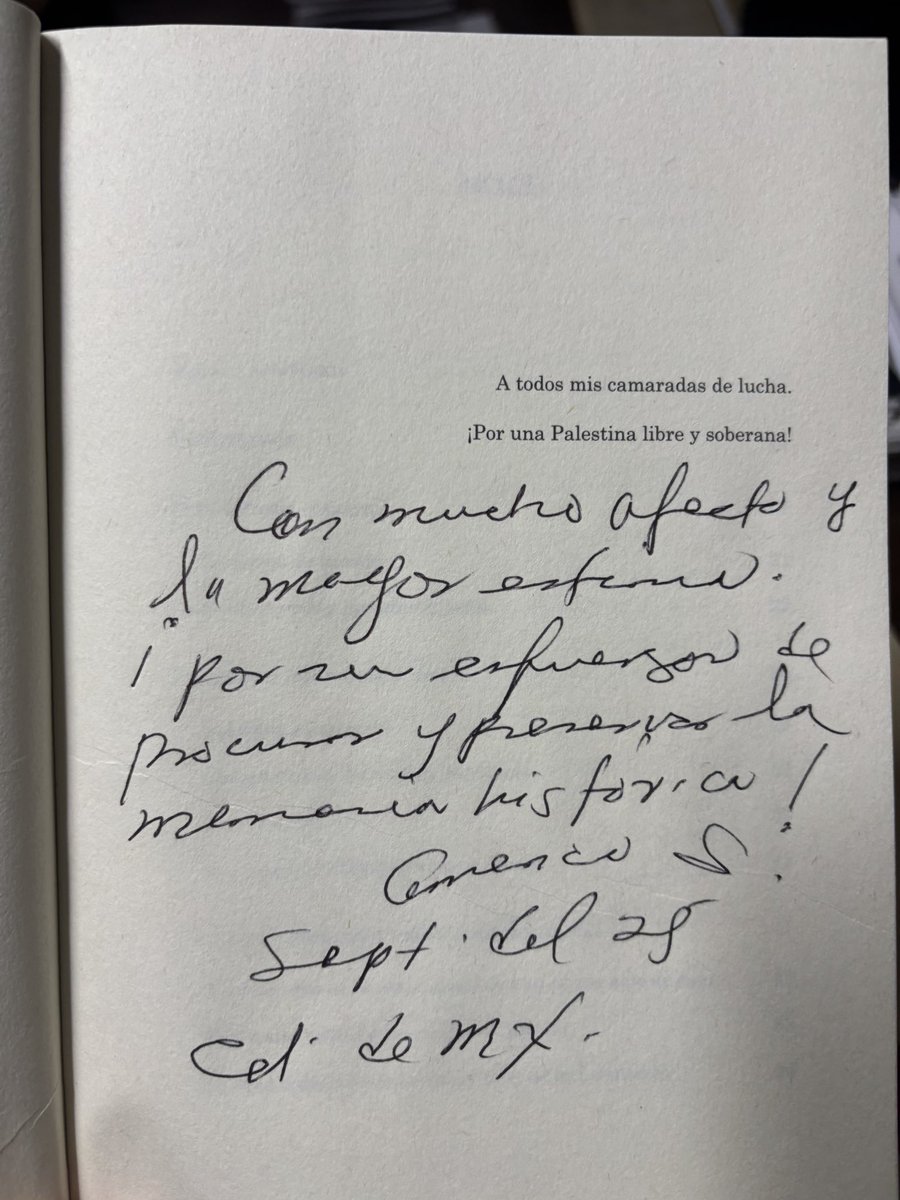 A todos mis camaradas de lucha.
¡Por una Palestina libre y soberana!
Con mucho afecto y
la mayor estima.
¡por su esfuerzo de
procurar y preservar la
memoria histórica!
Americo S.
Sept. del 25
Cd. de MX.